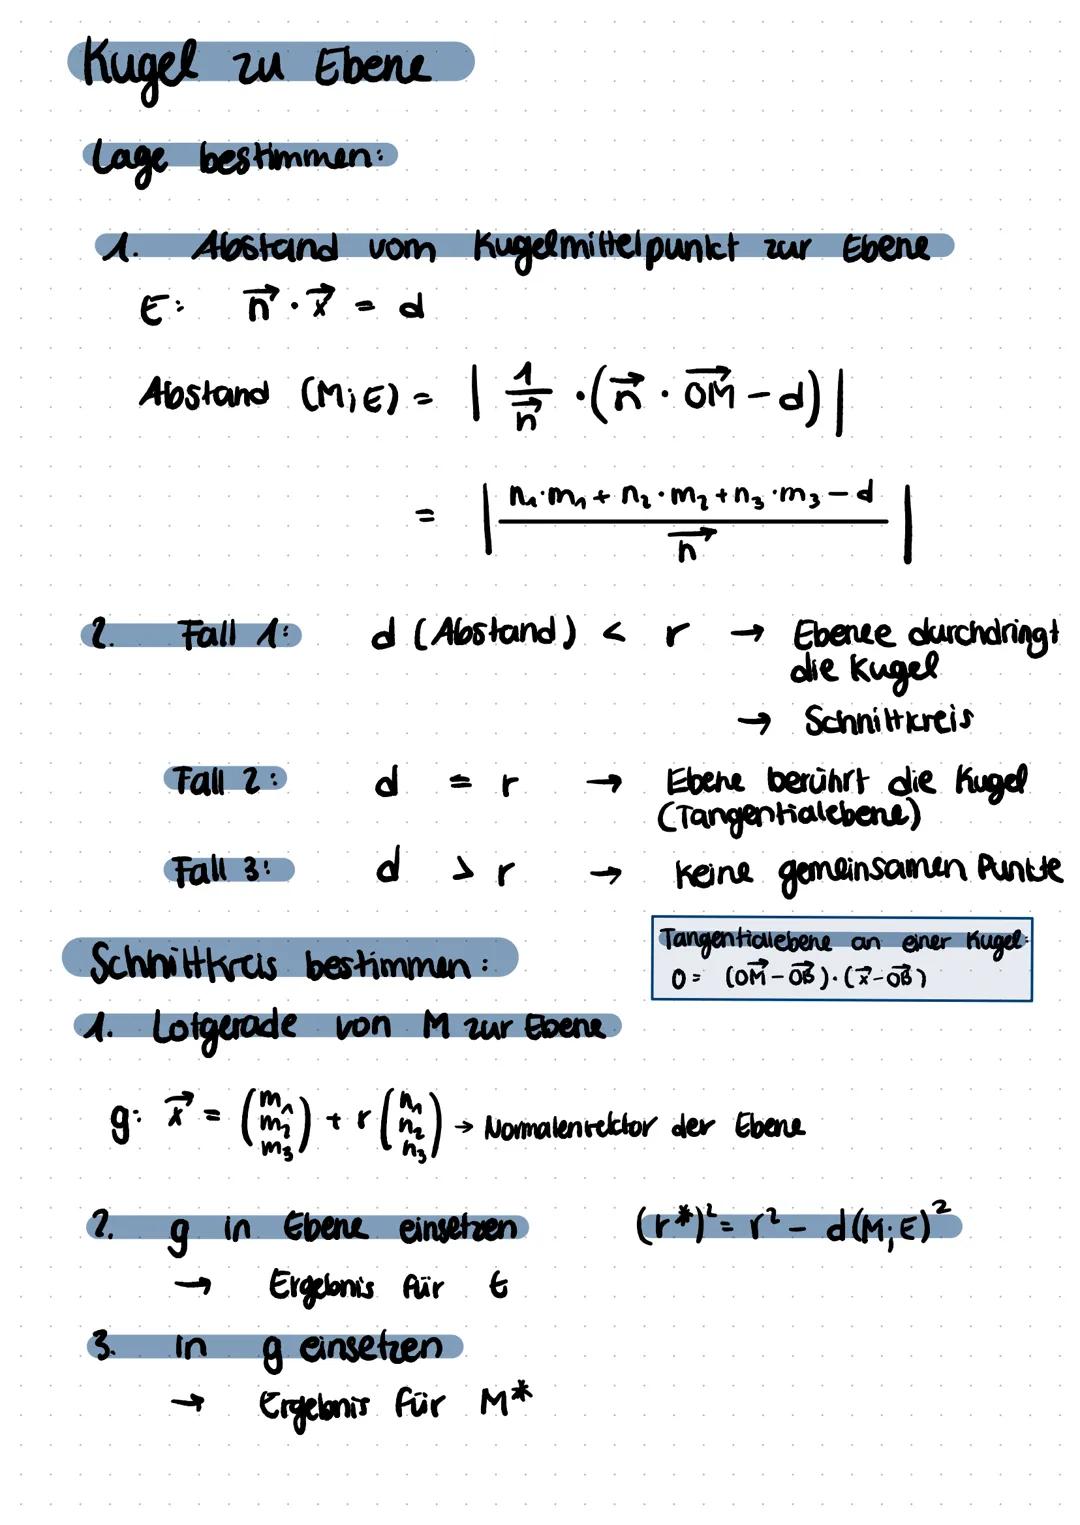 Kugel zu Ebene
Lage bestimmen:
1. Abstand vom Kugelmittelpunkt zur Ebene
E: n⃗ · x⃗ = d
Abstand (M;E) = | 1/n⃗ · (n⃗ · OM⃗ - d) |
= | (n₁·m₁ + n₂·m₂ + n₃·m₃ - d) / n⃗ |
2. Fall 1: d (Abstand) < r → Ebenee durchdringt
die Kugel
→ Schnittkreis
Fall 2: d = r → Ebene berührt die Kugel
(Tangentialebene)
Fall 3: d > r → Keine gemeinsamen Punkte
Tangentialebene an einer Kugel:
0 = (OM⃗ - OB⃗) · (x⃗ - OB⃗)
Schnittkreis bestimmen:
1. Lotgerade von M zur Ebene
g: x⃗ = (m₁ m₂ m₃) + r (n₁ n₂ n₃) → Normalenvektor der Ebene
2. g in Ebene einsetzen
(r*)² = r² - d(M;E)²
→ Ergebnis für t
3. in g einsetzen
→ Ergebnis für M*